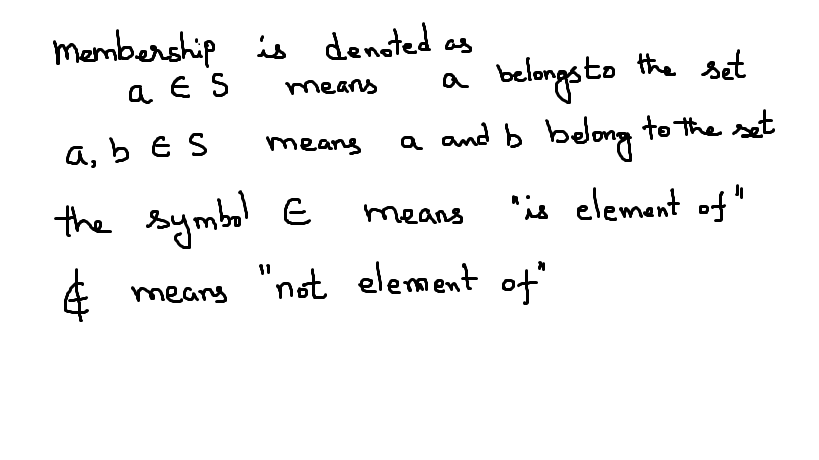 Membership is denoted as
a ∈ S means a belongs to the set
a, b ∈ S means a and b belong to the set
the symbol ∈ means "is element of"
∉ means "not element of"